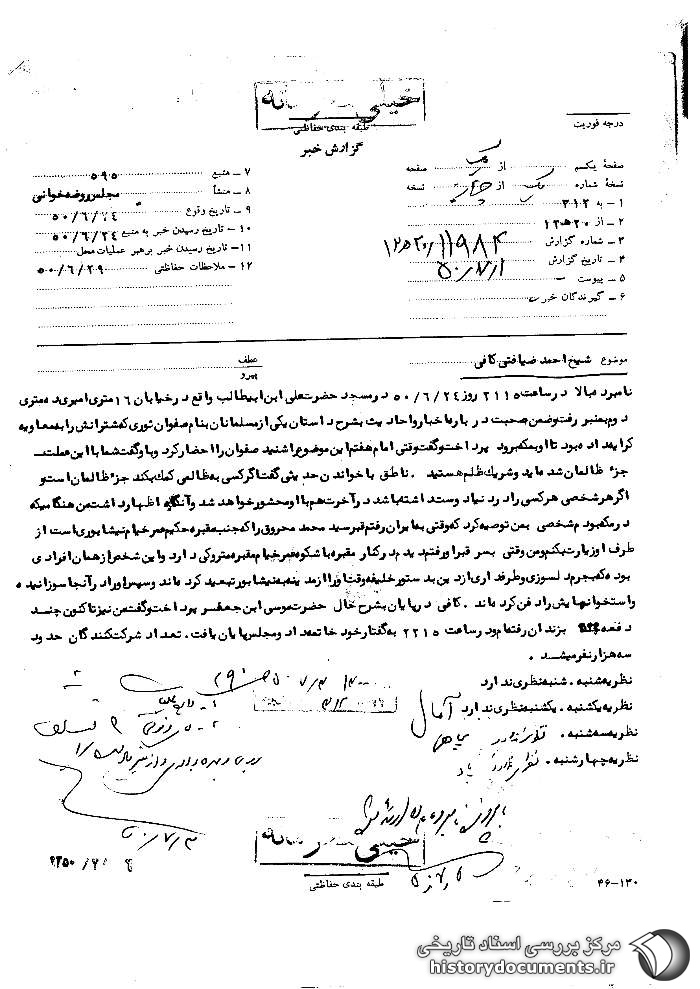 خیلی محرمانه
طبقه بندی حفاظتی
گزارش خبر
درجه فوریت
صفحهٔ یکم از یک صفحه
نسخهٔ شماره یک از چهار نسخه
۱ – به ۳۱۲
۲ – از ۲۰ه۱۲
۳ – شماره گزارش ۱۱۹۸۴/۲۰ه۱۲
۴ – تاریخ گزارش ۵۰/۷/۱
۵ – پیوست –
۶ – گیرندگان خبر –
۷ – منبع ۵۹۵
۸ – منشأ مجلس روضه خوانی
۹ – تاریخ وقوع ۵۰/۶/۲۴
۱۰ – تاریخ رسیدن خبر به منبع ۵۰/۶/۲۴
۱۱ – تاریخ رسیدن خبر برهبر عملیات محل
۱۲ – ملاحظات حفاظتی ۵۰/۶/۲۹
موضوع شیخ احمد ضیافتی کافی
عطف
پیرو
نامبرده بالا در ساعت ۲۱۱۵ روز ۵۰/۶/۲۴ در مسجد حضرت علی ابن ابیطالب واقع در خیابان ۱۶ متری امیری ده متری
دوم بمنبر رفت وضمن صحبت در باره اخبار واحادیث بشرح داستان یکی از مسلمانان بنام صفوان توری که شترانش را بمعاویه
کرایه داده بود تا او بمکه برود پرداخت وگفت وقتی امام هفتم این موضوع را شنید صفوان را احضار کرد وباو گفت شما با این عملت
جزء ظالمان شده اید وشریک ظلم هستید . ناطق با خواندن حدیثی گفت اگر کسی به ظالمی کمک بکند جزء ظالمان است و
اگر هر شخصی هر کسی را در دنیا دوست داشته باشد در آخرت هم با او محشور خواهد شد وآنگاه اظهار داشت من هنگامیکه
در مکه بودم شخصی بمن توصیه کرد که وقتی به ایران رفتم قبر سید محمد محروق را که جنب مقبره حکیم عمر خیام نیشابوری است از
طرف او زیارت بکنم ومن وقتی بسر قبر او رفتم دیدم در کنار مقبره باشکوه عمر خیام مقبره متروکی دارد واین شخص از همان افرادی
بوده که بجرم دلسوزی وطرفداری از دین بدستور خلیفه وقت او را از مدینه به نیشابور تبعید کرده اند وسپس او را در آنجا سوزانیده
واستخوانهایش را دفن کرده اند . کافی در پایان بشرح حال حضرت موسی ابن جعفر پرداخت وگفت من نیز تاکنون چند
دفعه بزندان رفته ام ودر ساعت ۲۲۱۵ به گفتار خود خاتمه داد ومجلس پایان یافت . تعداد شرکت کنندگان حدود
سه هزار نفر میشد .
نظریه شنبه . شنبه نظری ندارد
نظریه یکشنبه . یکشنبه نظری ندارد آمال
نظریه سه شنبه . نظری ندارد
نظریه چهارشنبه . نظری ندارد
۵۰/۷/۳
خیلی محرمانه
طبقه بندی حفاظتی
۴۶–۱۳۰
مرکز بررسی اسناد تاریخی
historydocuments.ir